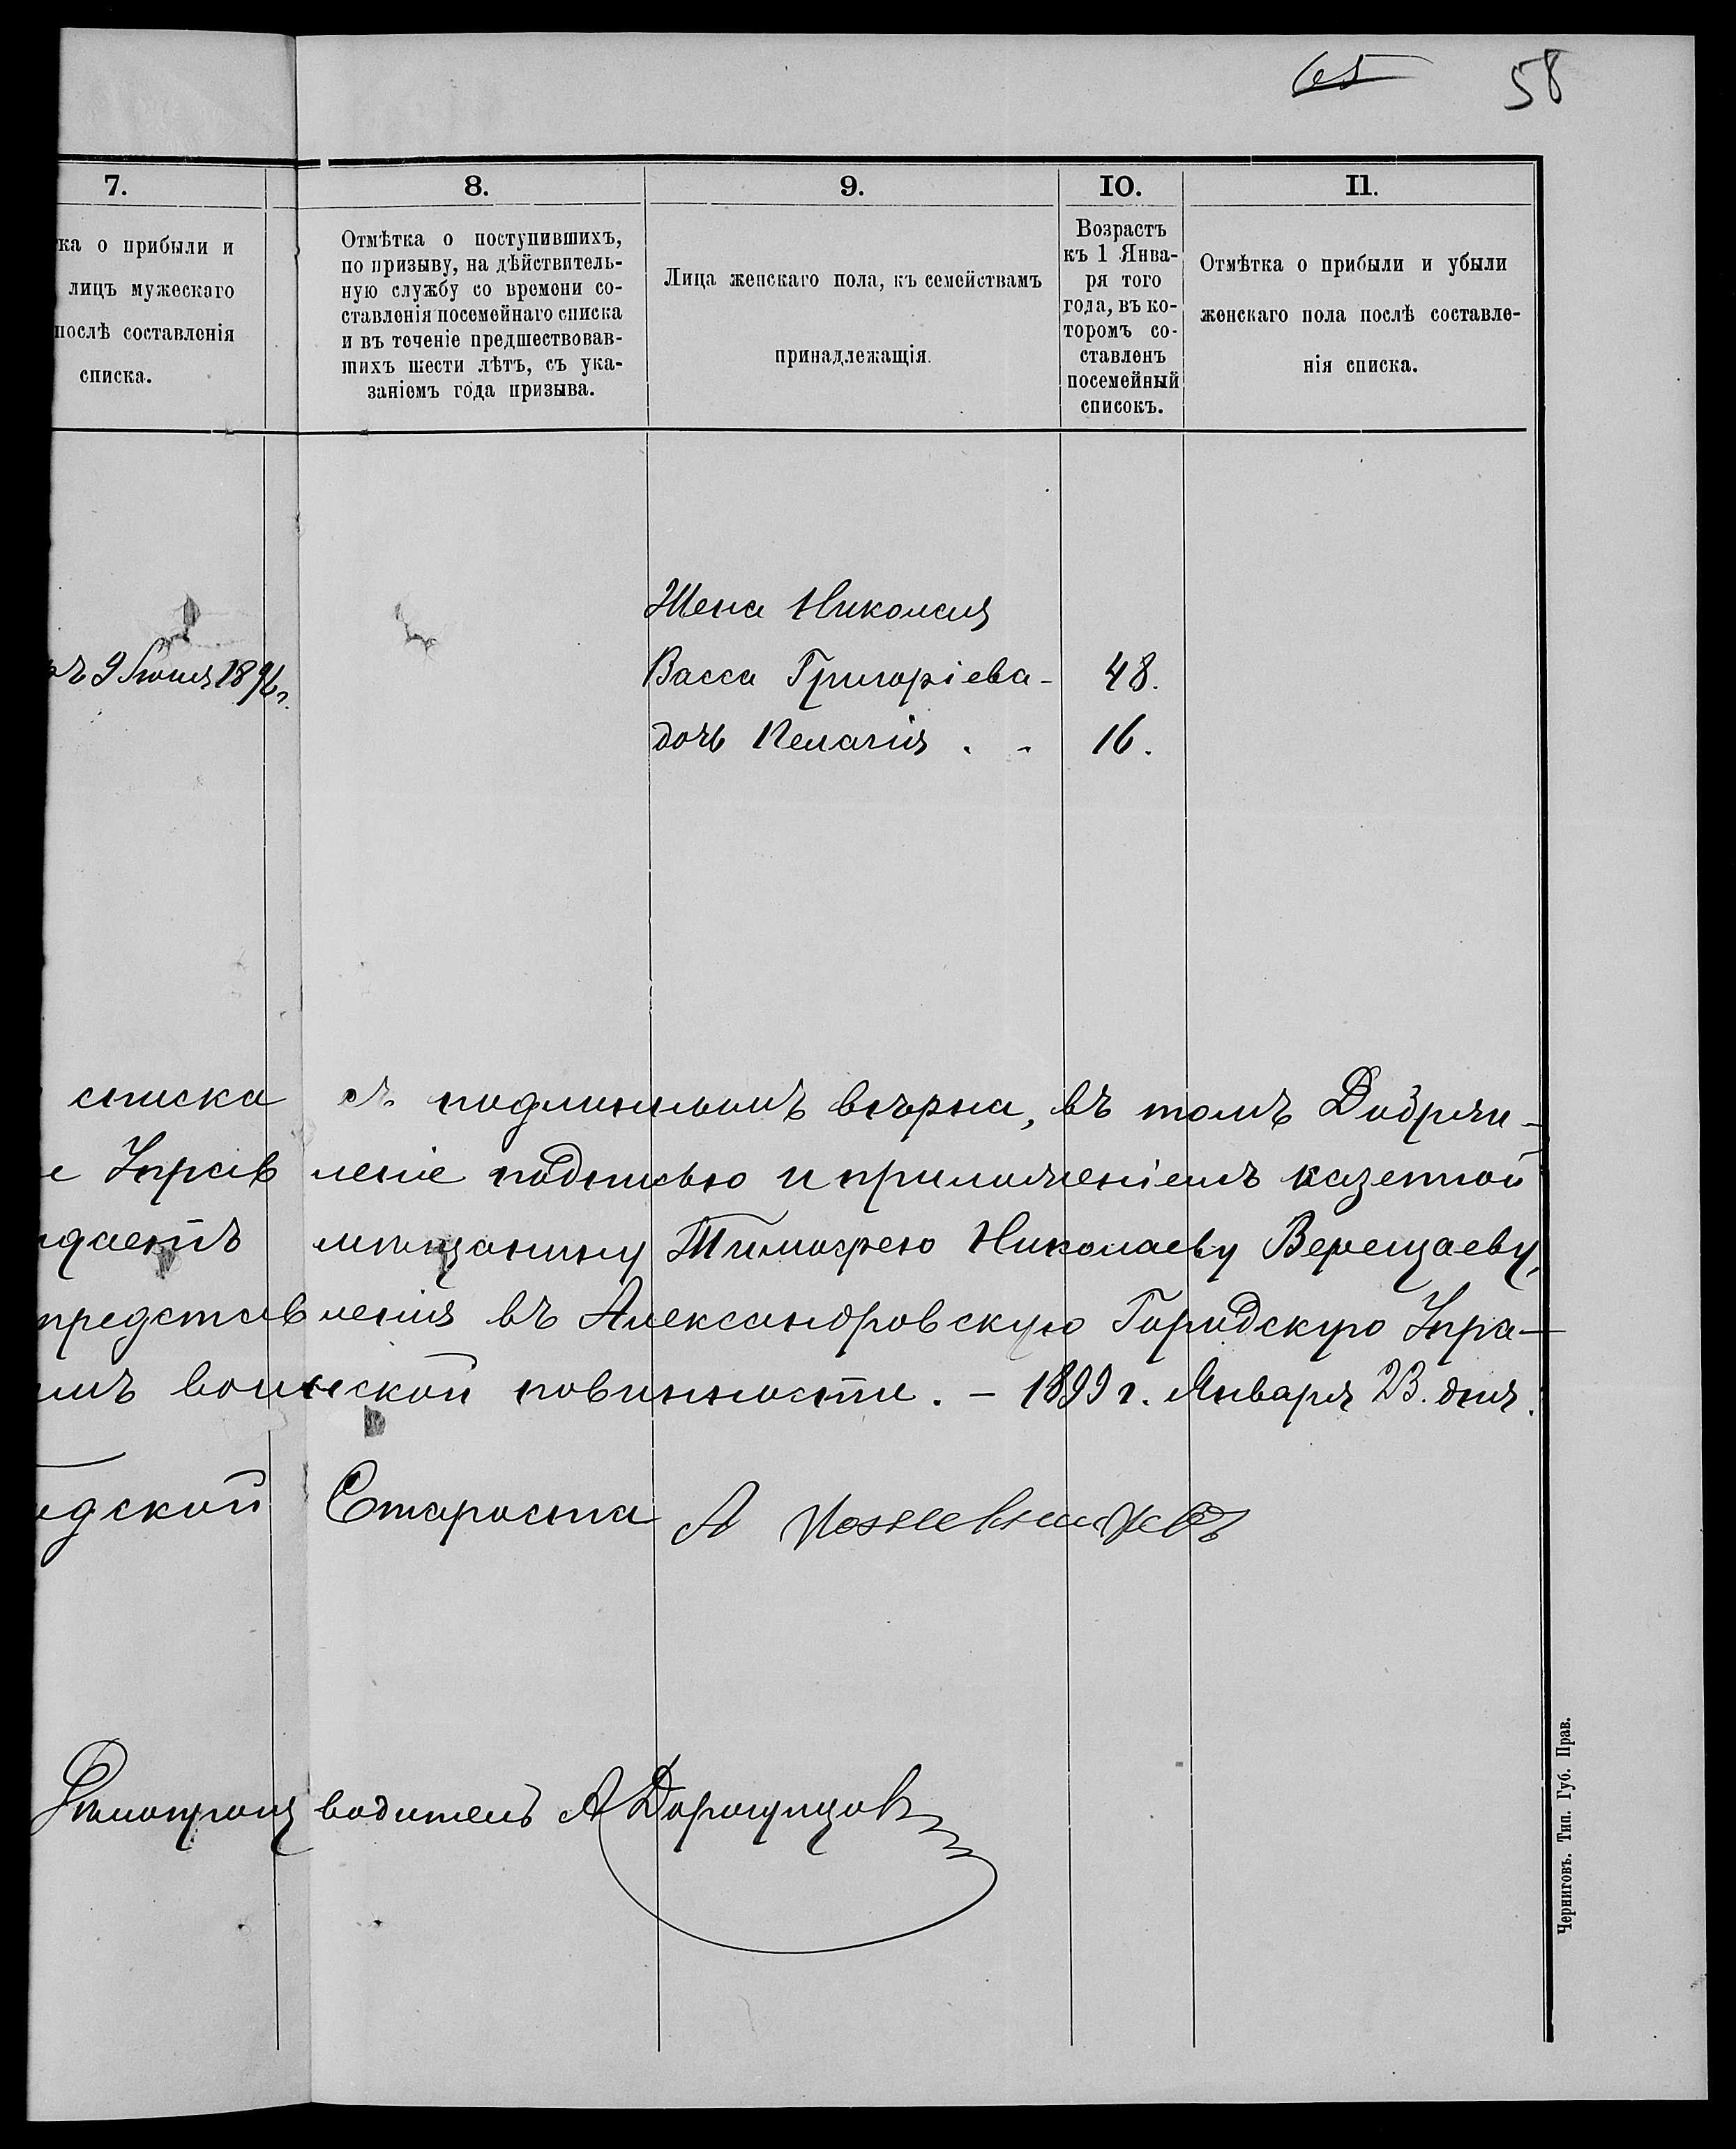 65 58
7. 8. 9. 10. 11.
ка о прибыли и
лицъ мужескаго
послѣ составленія
списка.
Отмѣтка о поступившихъ,
по призыву, на дѣйствитель-
ную службу со времени со-
ставленія посемейнаго списка
и въ теченіе предшествовав-
шихъ шести лѣтъ, съ ука-
заніемъ года призыва.
Лица женскаго пола, къ семействамъ
принадлежащія.
Возрастъ
къ 1 Янва-
ря того
года, въ ко-
торомъ со-
ставленъ
посемейный
списокъ.
Отмѣтка о прибыли и убыли
женскаго пола послѣ составле-
нія списка.
Жена Николая
ръ 9 Іюня 189 г.
Васса Григоріева - 48.
дочь Пелагія . - 16.
списка съ подлиннымъ вѣрна, въ томъ Добрян-
е Управленіе подписью и приложеніемъ казенной
даетъ мѣщанину Тимофею Николаеву Верещаеву,
представленія въ Александровскую Городскую Упра-
имъ воинской повинности. - 1899 г. Января 23. дня.
одской Староста А
Дѣлопроизводитель А Дорогунцов
Черниговъ. Тип. Губ. Прав.